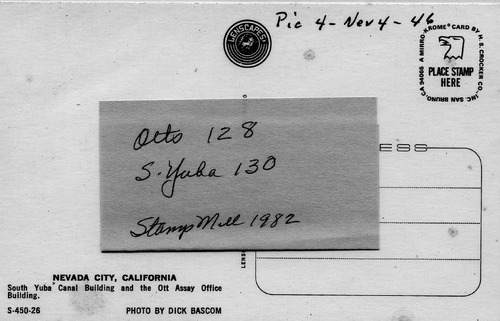 Pic 4 - Nev 4 - 46
LENSCAPES
A MIRRO-KROME® CARD BY H. S. CROCKER CO., INC. SAN BRUNO, CA 94066
PLACE STAMP
HERE
Otto 128
S. Yuba 130
Stamp Mill 1982
ESS
LENS
NEVADA CITY, CALIFORNIA
South Yuba Canal Building and the Ott Assay Office
Building.
S-450-26
PHOTO BY DICK BASCOM